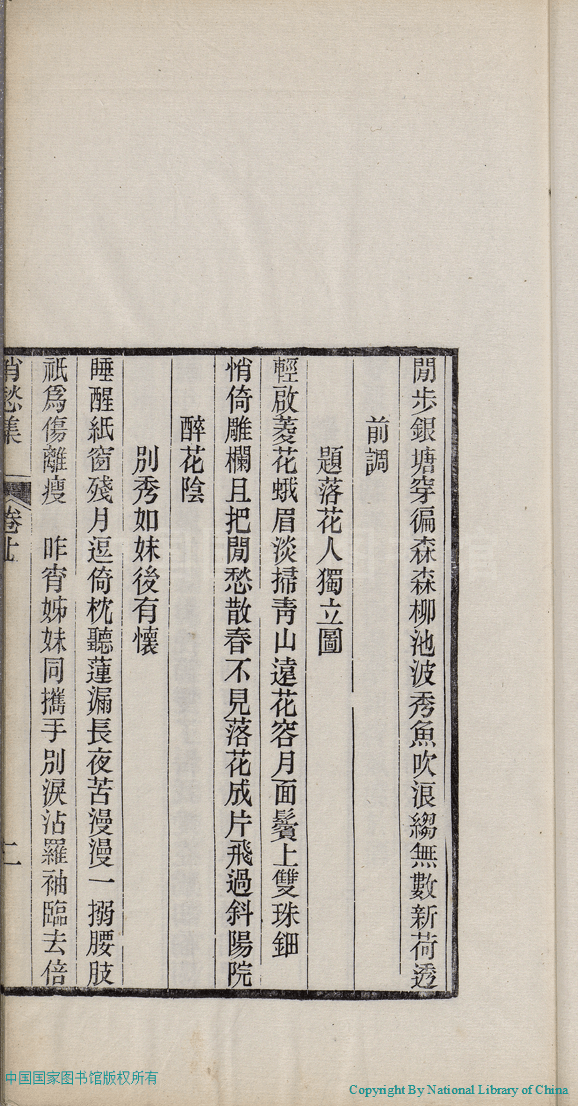 閒步銀塘穿徧森森柳池波秀魚吹浪縐無數新荷透
前調
題落花人獨立圖
輕啟菱花蛾眉淡掃靑山遠花容月面鬢上雙珠鈿
悄倚雕欄且把閒愁散春不見落花成片飛過斜陽院
醉花陰
別秀如妹後有懷
睡醒紙窗殘月逗倚枕聽蓮漏長夜苦漫漫一搦腰肢
祇爲傷離瘦　昨宵姊妹同攜手別淚沾羅袖臨去倍
消愁集
卷上
二
中国国家图书馆版权所有
Copyright By National Library of China